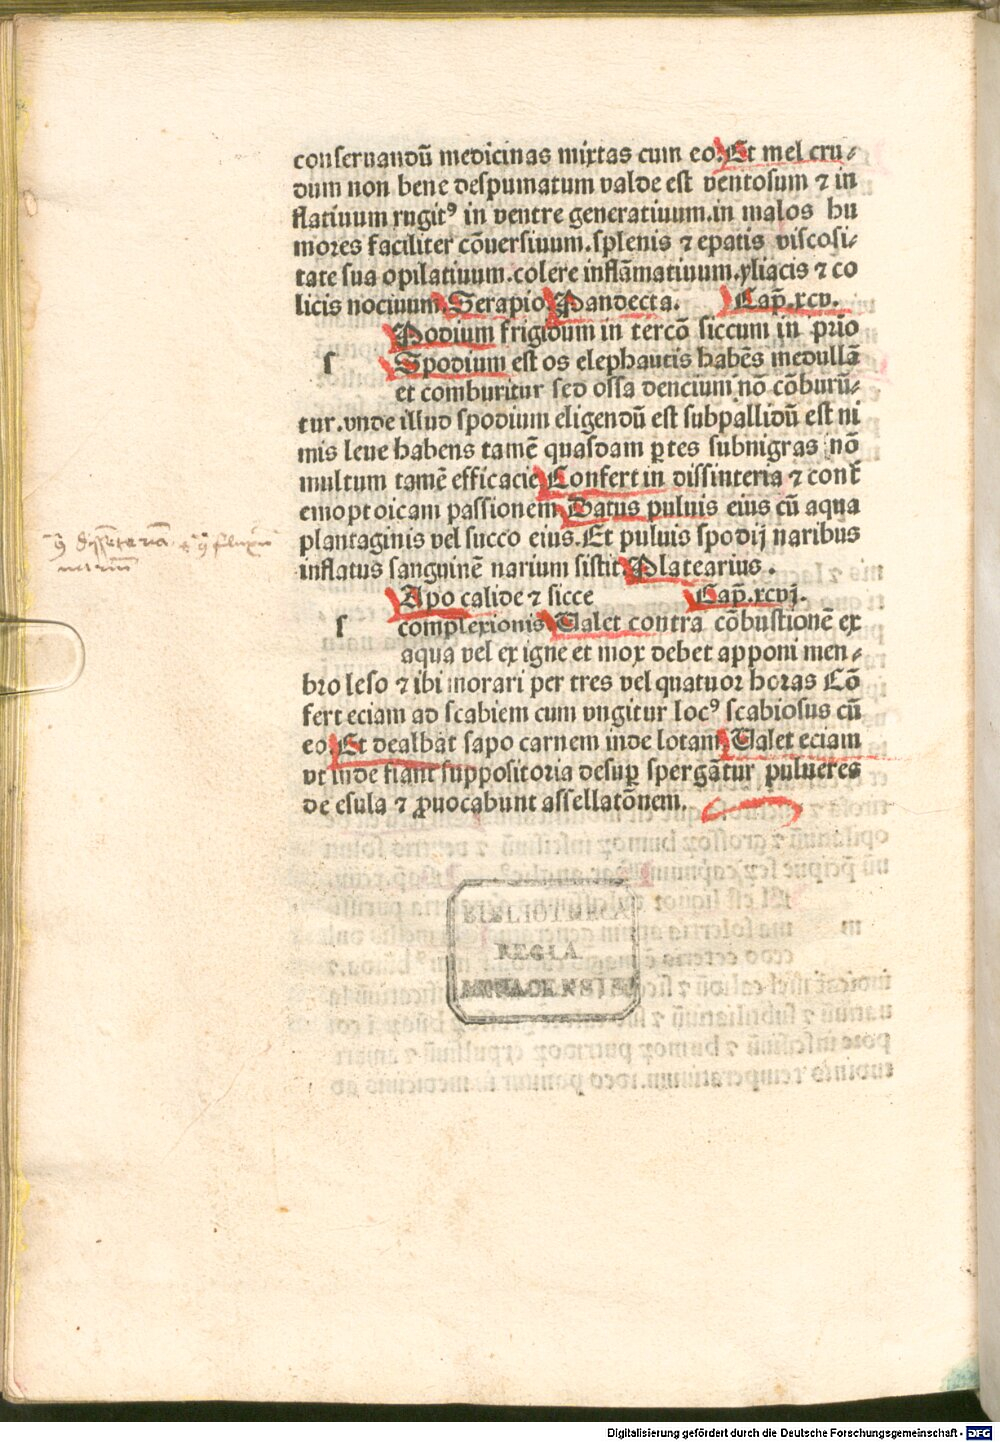 conseruandū medicinas mixtas cum eo. Et mel cru⸗
dum non bene despumatum valde est ventosum ⁊ in
flatiuum rugitꝰ in ventre generatiuum. in malos hu
mores faciliter cōuersiuum. splenis ⁊ epatis viscosi⸗
tate sua opilatiuum. colere inflāmatiuum. yliacis ⁊ co
licis nociuum. Serapio. Pandecta. Cap̄. xcv.
Podium frigidum in tercō siccum in prīo
s Spodium est os elephantis habēs medullā
et comburitur sed ossa dencium nō cōburū⸗
tur. vnde illud spodium eligendū est subpallidū est ni
mis leue habens tamē quasdam ꝑtes subnigras nō
multum tamē efficacie. Confert in dissinteria ⁊ cont̄
emoptoicam passionem. Datus puluis eius cū aqua
plantaginis vel succo eius. Et puluis spodij naribus
inflatus sanguinē narium sistit. Platearius.
Apo calide ⁊ sicce Cap̄. xcvj.
s complexionis. Valet contra cōbustionē ex
aqua vel ex igne et mox debet apponi men⸗
bro leso ⁊ ibi morari per tres vel quatuor horas Cō
fert eciam ad scabiem cum vngitur locꝰ scabiosus cū
eo. Et dealbat sapo carnem inde lotam. Valet eciam
vt inde fiant suppositoria desuꝑ spergātur pulueres
de esula ⁊ ꝓuocabunt assellatōnem.
BIBLIOTHECA
REGIA
MONACENSIS
Digitalisierung gefördert durch die Deutsche Forschungsgemeinschaft - DFG